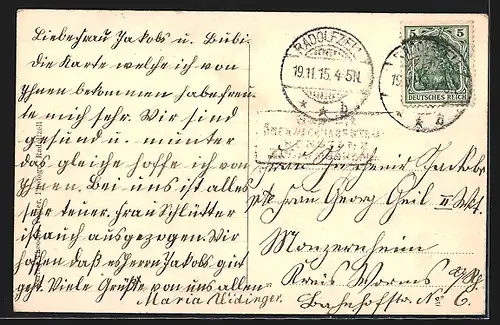 Liebe Frau Jakobs u. Bubi
die Karte welche ich von
Ihnen bekommen habe freu
te mich sehr. Wir sind
gesund u. munter
das gleiche hoffe ich von
Ihnen. Bei uns ist alles
sehr teuer. Frau Schlütter
ist auch ausgezogen. Wir
hoffen daß es Herrn Jakobs gut
geht. Viele Grüße von uns allen
Maria Uidinger.
RADOLFZELL
19.11.15. 4-5N.
* * b
5 5
DEUTSCHES REICH
19
* * b
Frau
Frau Georg Geil II
Monzernheim
Kreis Worms a/Rh.
Bahnhofstr. No 6.
Radolfzell